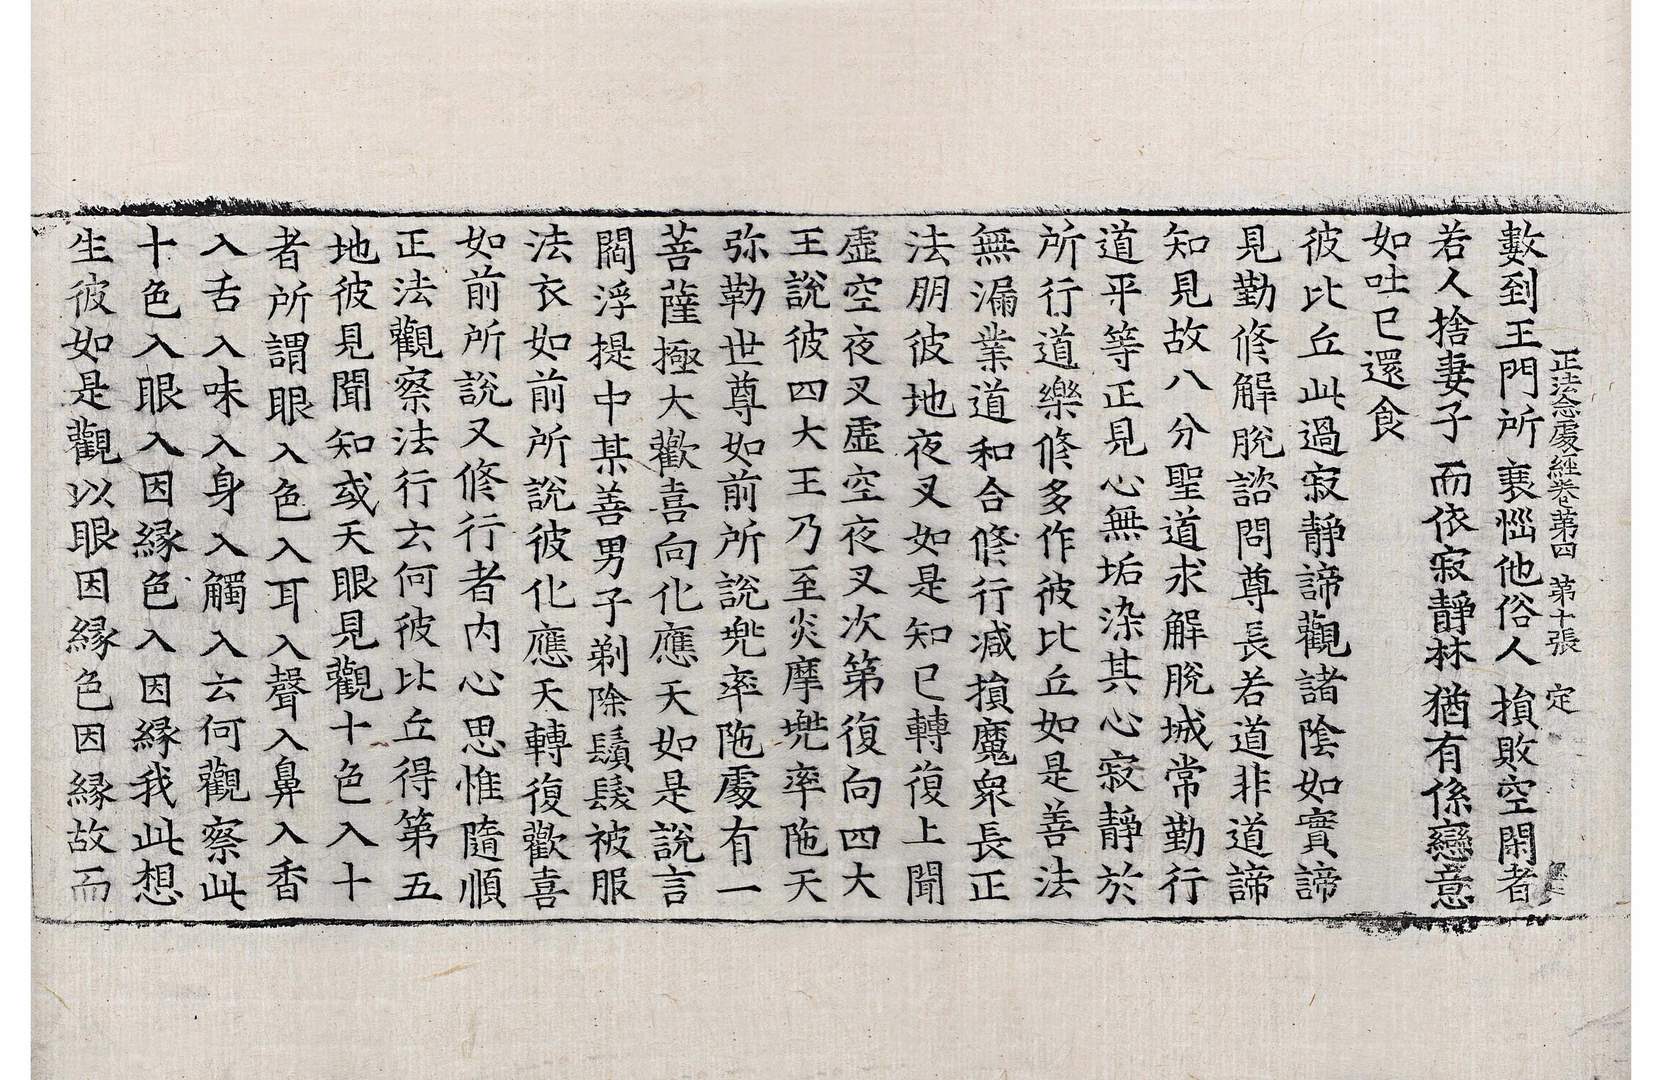 正法念處經卷第四　第十張　定
數到王門所　衷惱他俗人　損敗空閑者
若人捨妻子　而依寂靜林　猶有係戀意
如吐已還食
彼比丘此過寂靜諦觀諸陰如實諦
見勤修解脫諮問尊長若道非道諦
知見故八分聖道求解脫城常勤行
道平等正見心無垢染其心寂靜於
所行道樂修多作彼比丘如是善法
無漏業道和合修行減損魔衆長正
法朋彼地夜叉如是知已轉復上聞
虛空夜叉虛空夜叉次第復向四大
王說彼四大王乃至炎摩兠率陁天
弥勒世尊如前所說兠率陁處有一
菩薩極大歡喜向化應天如是說言
閻浮提中某善男子剃除鬚髮被服
法衣如前所說彼化應天轉復歡喜
如前所說又修行者內心思惟隨順
正法觀察法行云何彼比丘得第五
地彼見聞知或天眼見觀十色入十
者所謂眼入色入耳入聲入鼻入香
入舌入味入身入觸入云何觀察此
十色入眼入因緣色入因緣我此想
生彼如是觀以眼因緣色因緣故而